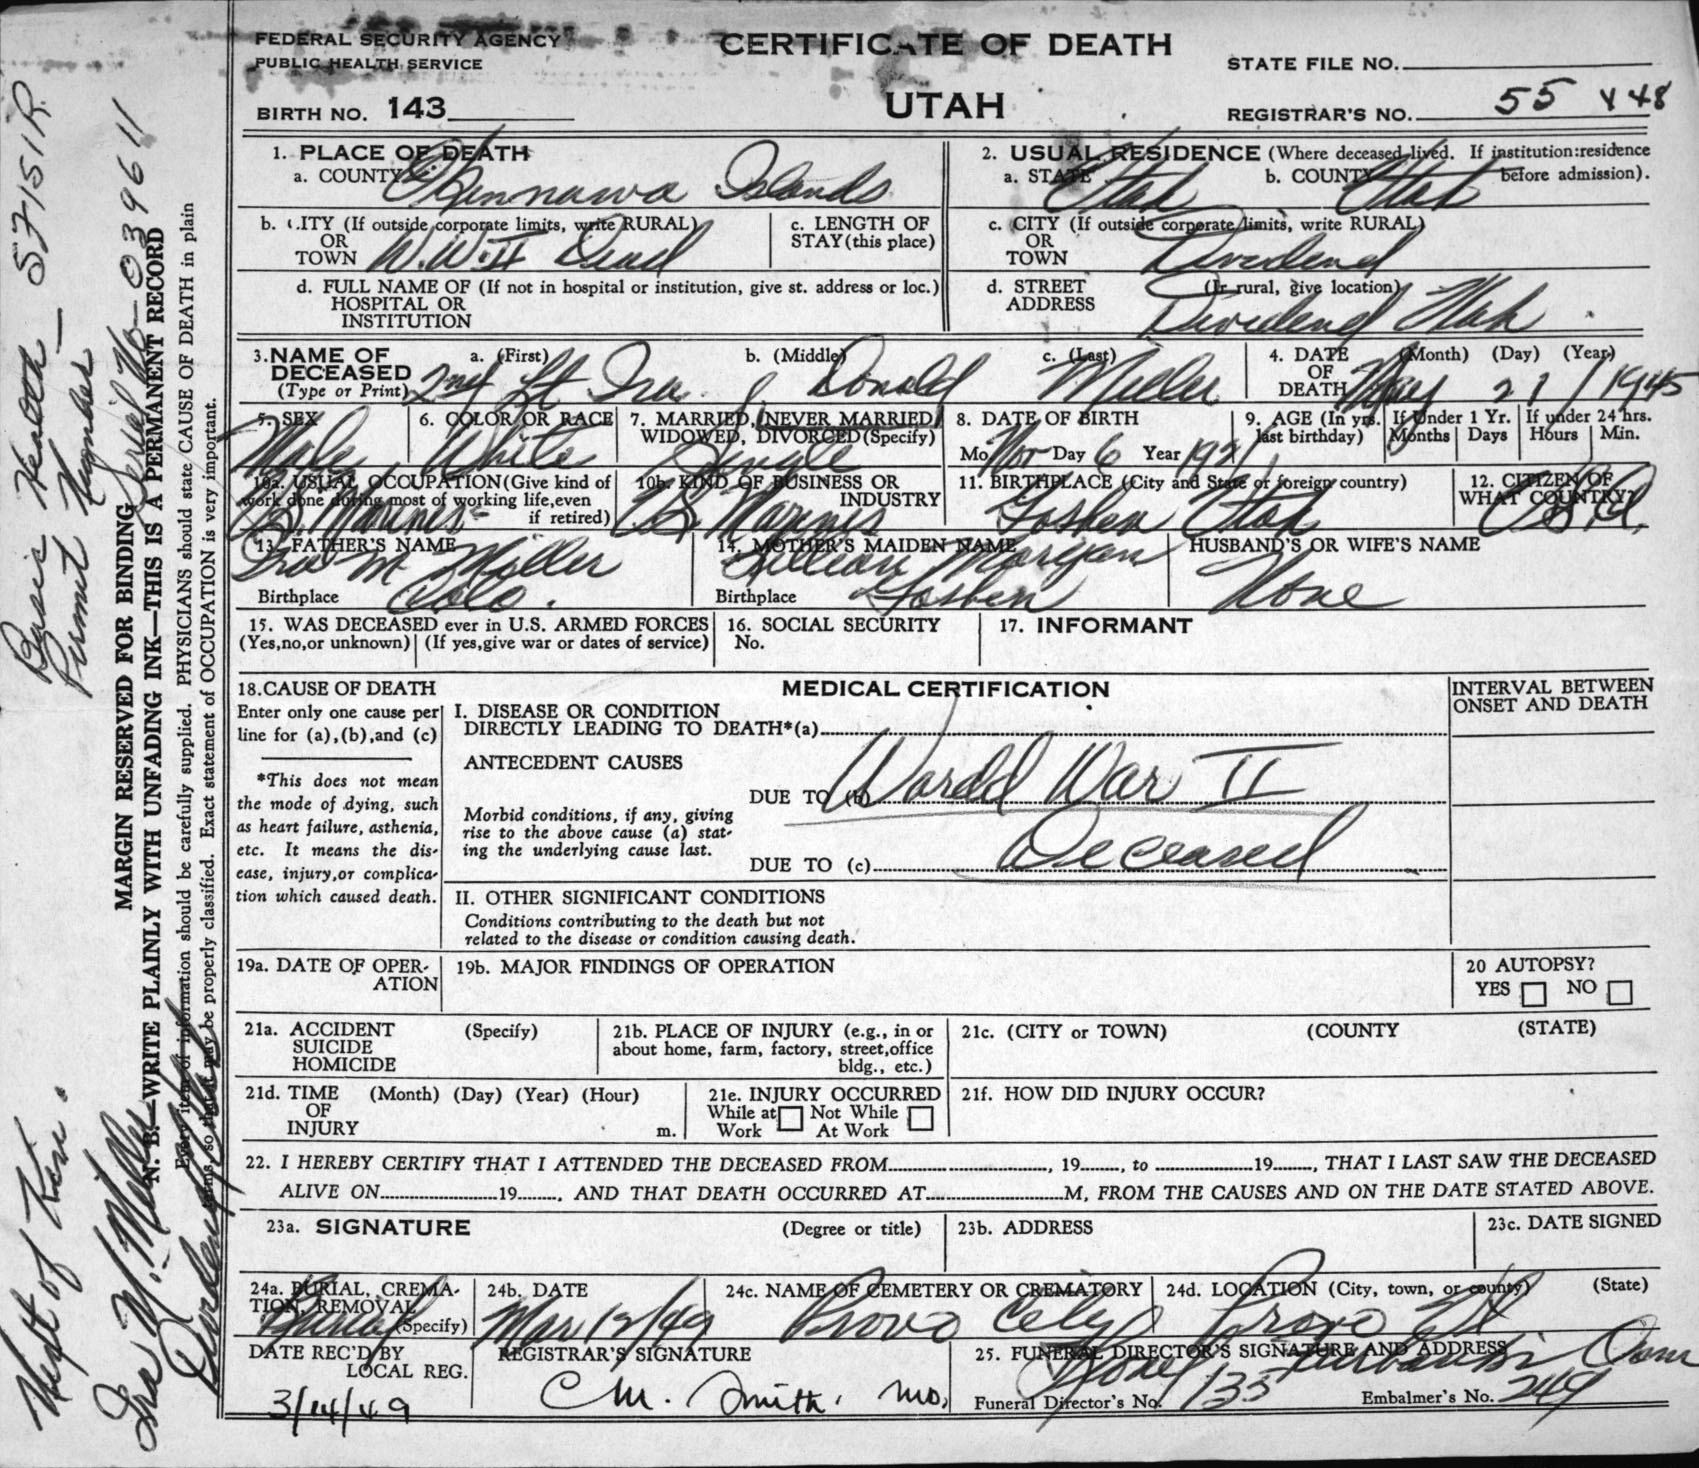 FEDERAL SECURITY AGENCY
PUBLIC HEALTH SERVICE
CERTIFICATE OF DEATH
STATE FILE NO.
BIRTH NO. 143
UTAH
REGISTRAR'S NO. 55 448
1. PLACE OF DEATH
a. COUNTY Okinnawa Islands
2. USUAL RESIDENCE (Where deceased lived. If institution:residence before admission).
a. STATE Utah b. COUNTY Utah
b. CITY (If outside corporate limits, write RURAL)
OR
TOWN W.W.II Dead
c. LENGTH OF
STAY (this place)
c. CITY (If outside corporate limits, write RURAL)
OR
TOWN Dividend
d. FULL NAME OF (If not in hospital or institution, give st. address or loc.)
HOSPITAL OR
INSTITUTION
d. STREET (If rural, give location)
ADDRESS Dividend Utah
3. NAME OF DECEASED
(Type or Print)
a. (First) b. (Middle) c. (Last)
2nd Lt Ira Donald Miller
4. DATE OF DEATH (Month) (Day) (Year)
May 21/1945
5. SEX
Male
6. COLOR OR RACE
White
7. MARRIED, NEVER MARRIED,
WIDOWED, DIVORCED (Specify)
Single
8. DATE OF BIRTH
Mo. Nov Day 6 Year 1921
9. AGE (In yrs. last birthday)
If Under 1 Yr.
Months Days
If under 24 hrs.
Hours Min.
10a. USUAL OCCUPATION (Give kind of
work done during most of working life, even
if retired)
US Marines
10b. KIND OF BUSINESS OR
INDUSTRY
US Marines
11. BIRTHPLACE (City and State or foreign country)
Goshen Utah
12. CITIZEN OF
WHAT COUNTRY?
USA.
13. FATHER'S NAME
Ira M Miller
Birthplace Colo.
14. MOTHER'S MAIDEN NAME
Lillean Morgan
Birthplace Goshen
HUSBAND'S OR WIFE'S NAME
None
15. WAS DECEASED ever in U.S. ARMED FORCES
(Yes,no,or unknown) (If yes,give war or dates of service)
16. SOCIAL SECURITY
No.
17. INFORMANT
18. CAUSE OF DEATH
Enter only one cause per
line for (a),(b),and (c)
*This does not mean
the mode of dying, such
as heart failure, asthenia,
etc. It means the dis-
ease, injury,or complica-
tion which caused death.
MEDICAL CERTIFICATION
I. DISEASE OR CONDITION
DIRECTLY LEADING TO DEATH*(a)
ANTECEDENT CAUSES
DUE TO (b) World War II
Morbid conditions, if any, giving
rise to the above cause (a) stat-
ing the underlying cause last.
DUE TO (c) Deceased
II. OTHER SIGNIFICANT CONDITIONS
Conditions contributing to the death but not
related to the disease or condition causing death.
INTERVAL BETWEEN
ONSET AND DEATH
19a. DATE OF OPER-
ATION
19b. MAJOR FINDINGS OF OPERATION
20 AUTOPSY?
YES NO
21a. ACCIDENT (Specify)
SUICIDE
HOMICIDE
21b. PLACE OF INJURY (e.g., in or
about home, farm, factory, street,office
bldg., etc.)
21c. (CITY or TOWN) (COUNTY (STATE)
21d. TIME (Month) (Day) (Year) (Hour)
OF
INJURY m.
21e. INJURY OCCURRED
While at Work Not While At Work
21f. HOW DID INJURY OCCUR?
22. I HEREBY CERTIFY THAT I ATTENDED THE DECEASED FROM , 19 , to 19 , THAT I LAST SAW THE DECEASED
ALIVE ON 19 , AND THAT DEATH OCCURRED AT M, FROM THE CAUSES AND ON THE DATE STATED ABOVE.
23a. SIGNATURE (Degree or title)
23b. ADDRESS
23c. DATE SIGNED
24a. BURIAL, CREMA-
TION, REMOVAL
(Specify)
Burial
24b. DATE
Mar 12/49
24c. NAME OF CEMETERY OR CREMATORY
Provo City
24d. LOCATION (City, town, or county) (State)
Provo Ut
DATE REC'D BY
LOCAL REG.
3/14/49
REGISTRAR'S SIGNATURE
C M. Smith, MD.
25. FUNERAL DIRECTOR'S SIGNATURE AND ADDRESS
Funeral Director's No. 133 Embalmer's No. 249
MARGIN RESERVED FOR BINDING
N. B.—WRITE PLAINLY WITH UNFADING INK—THIS IS A PERMANENT RECORD
Every item of information should be carefully supplied. PHYSICIANS should state CAUSE OF DEATH in plain
terms, so that it may be properly classified. Exact statement of OCCUPATION is very important.
Basic Health — 57151R.
Permit Number
Serial No—039611
Next of Kin.
Ira M. Miller
Dividend Utah